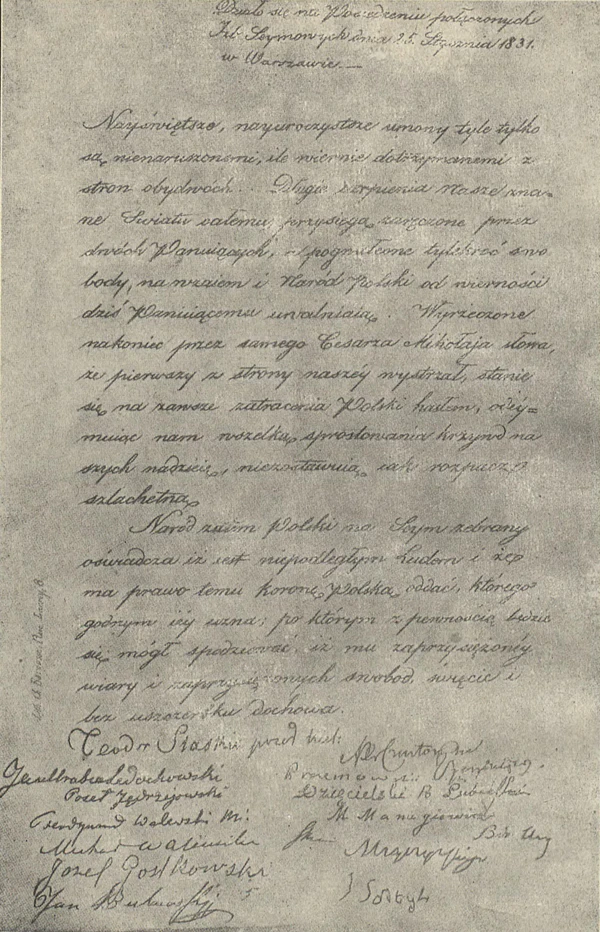 Działo się na Posiedzeniu połączonych
Izb Seymowych dnia 25. Stycznia 1831.
w Warszawie.—
Nayświętsze, nayuroczystsze umowy tyle tylko
są nienaruszonemi, ile wiernie dotrzymanemi z
stron obydwóch. Długie cierpienia nasze zna-
ne Światu całemu, przysięgą zaręczone przez
dwóch Panuiących, a pogwałcone tylekroć swo
body, na wzaiem i Naród Polski od wierności
dziś Panuiącemu uwalniaią. Wyrzeczone
nakoniec przez samego Cesarza Mikołaja słowa,
że pierwszy z strony naszéy wystrzał, stanie
się na zawsze zatracenia Polski hasłem, odéy-
muiąc nam wszelką sprostowania krzywd na
szych nadzieię, niezostawuią iak rozpacz
szlachetną.
Naród zatém Polski na Seym zebrany
oświadcza iż iest niepodległym Ludem i że
ma prawo temu koronę Polską oddać, którego
godnym iéy uzna; po którym z pewnością będzie
się mógł spodziewać, iż mu zaprzysiężonéy
wiary i zaprzysiężonych swobod, święcie i
bez uszczerbku dochowa.
Ledochowski
Poseł Jędrzejowski
Ferdynand Walewski
Michał Walewski
Józef Gostkowski
Jan
Sołtyk